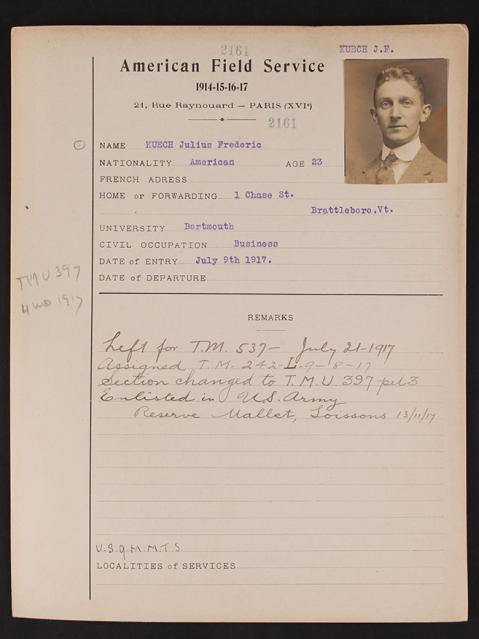 2161
KUECH J.F.
American Field Service
1914-15-16-17
21, Rue Raynouard — PARIS (XVIe)
2161
NAME KUECH Julius Frederic
NATIONALITY American AGE 23
FRENCH ADRESS
HOME or FORWARDING 1 Chase St.
Brattleboro.Vt.
UNIVERSITY Dartmouth
CIVIL OCCUPATION Business
DATE of ENTRY July 9th 1917.
DATE of DEPARTURE
TMU 397
1917
REMARKS
Left for T.M. 537 — July 21-1917
Assigned T.M. 242-L 9-8-17
Section changed to T.M.U. 397
Enlisted in U.S. Army
Reserve Mallet, Soissons 13/11/17
U.S.Q.M.M.T.S
LOCALITIES of SERVICES